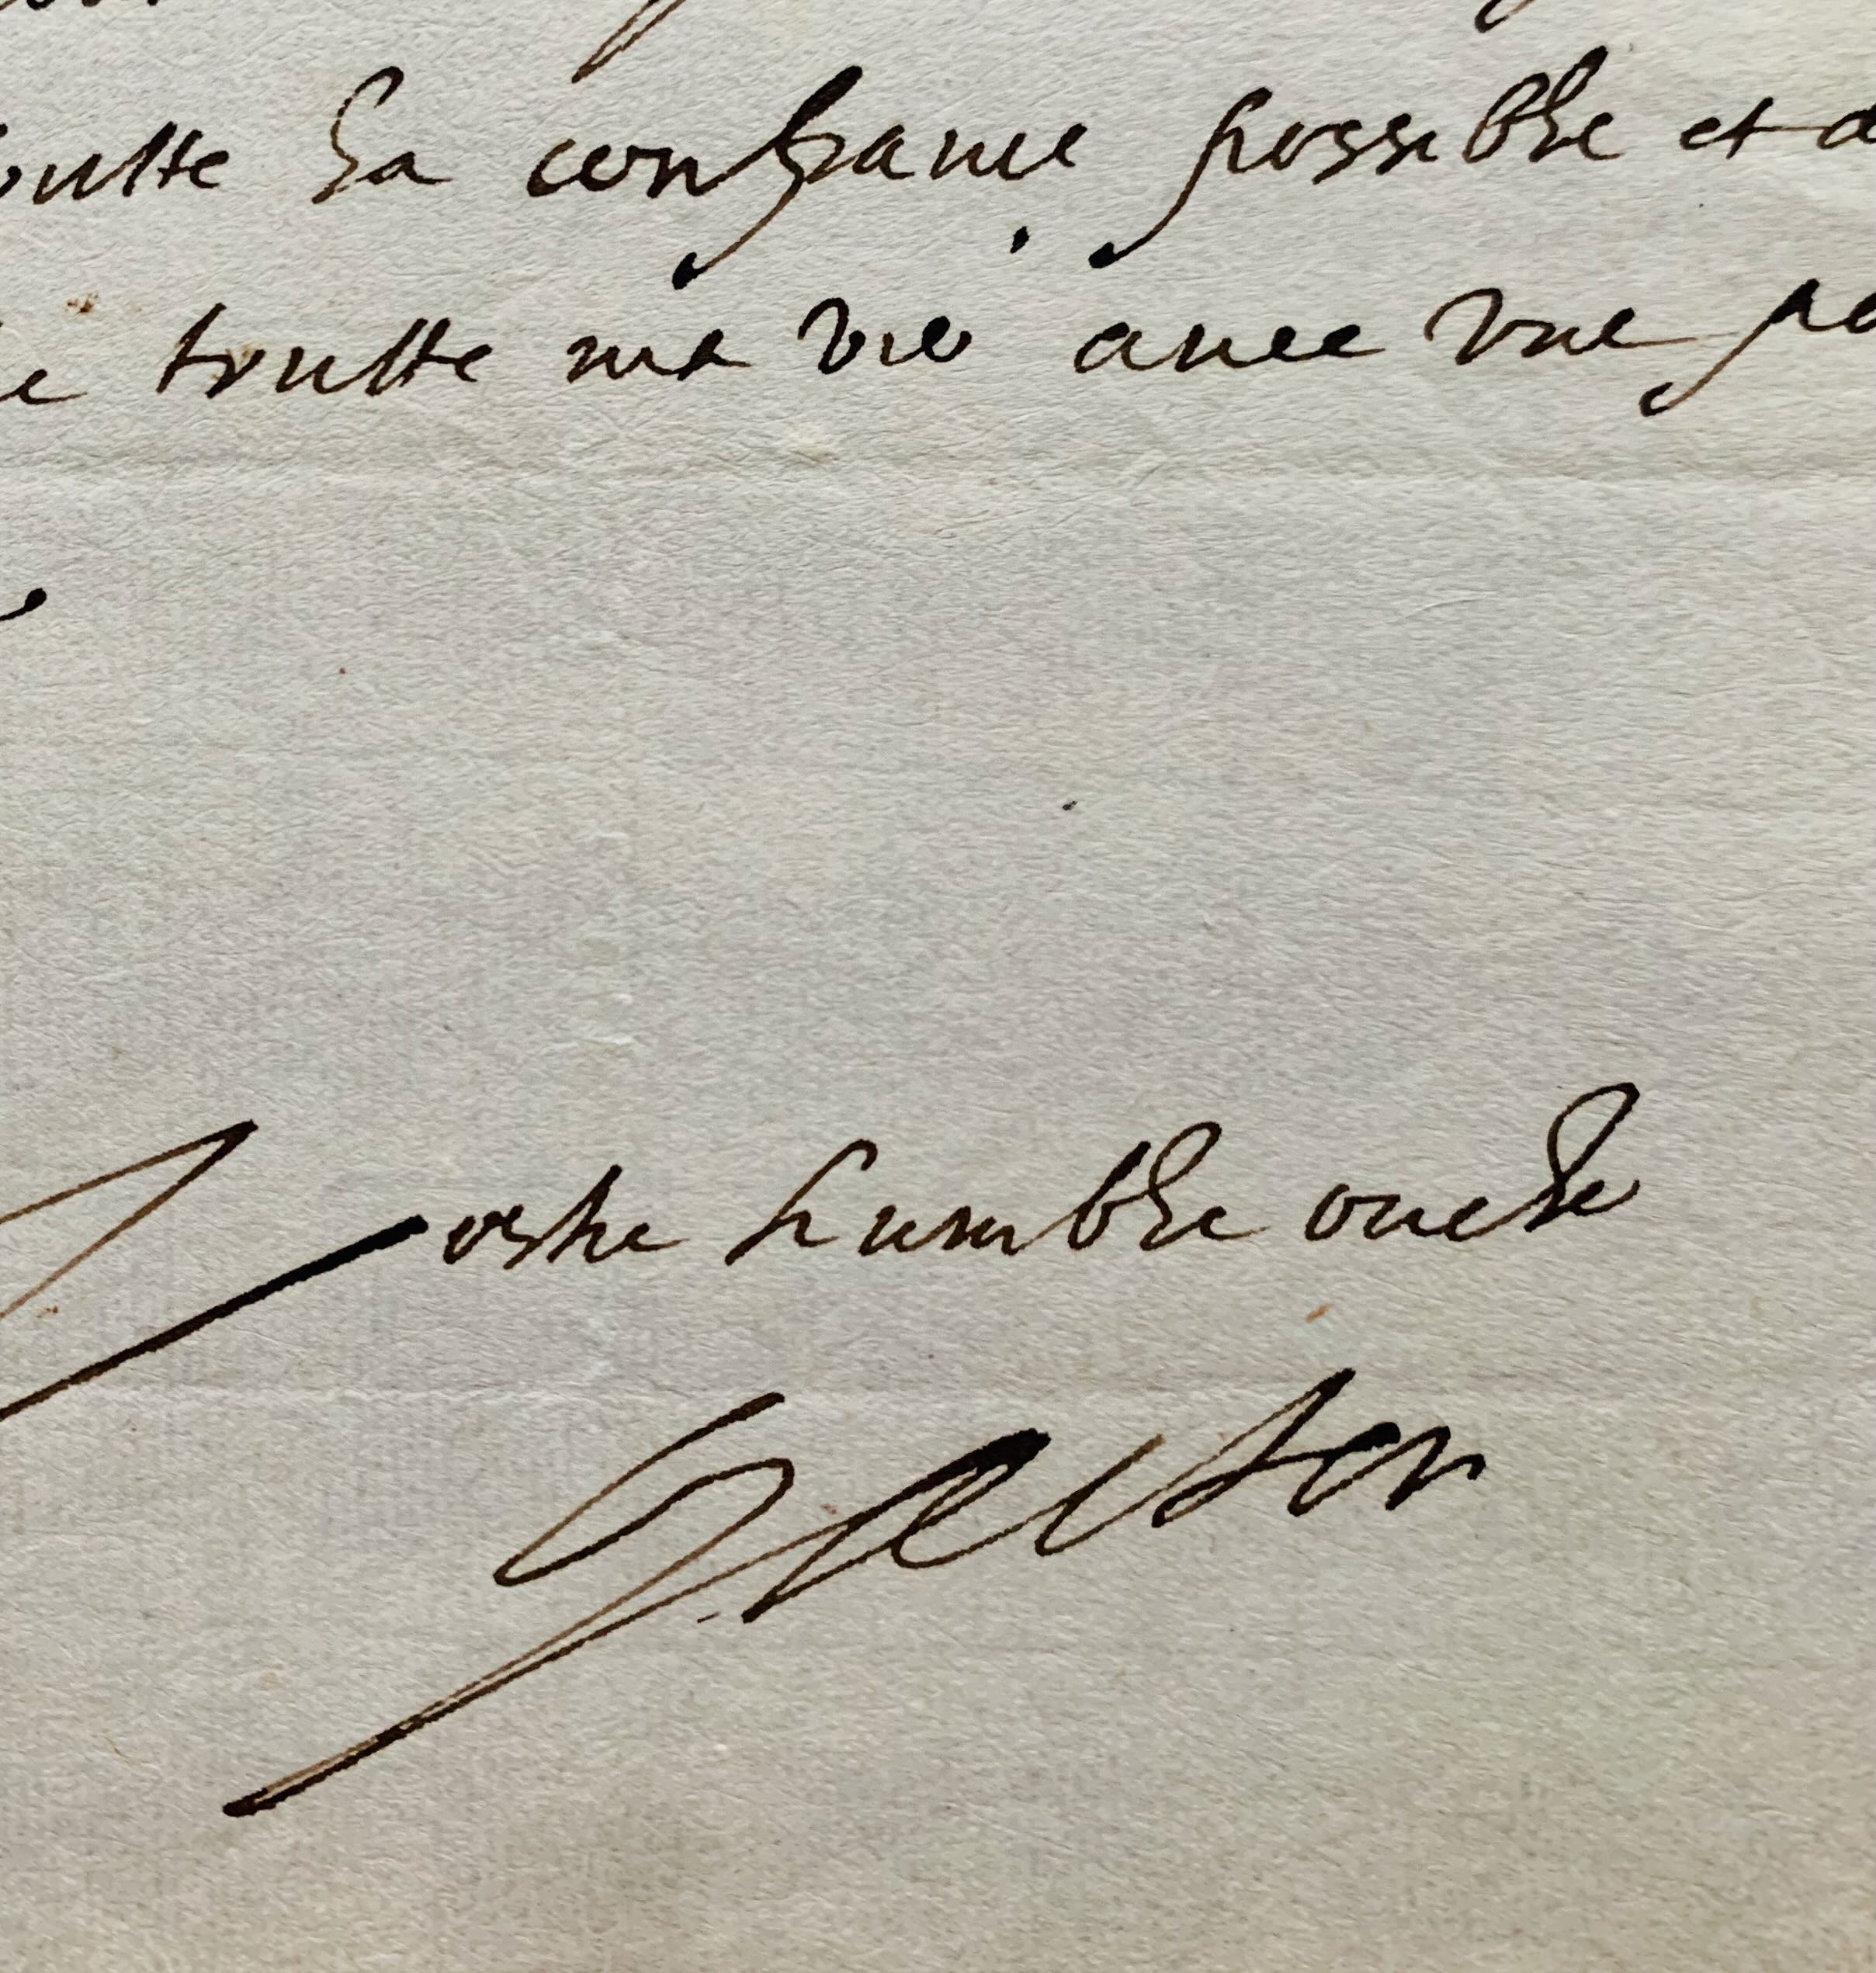 toutte la confiance possible et a
toutte ma vie auec vne pa
Vostre humble oncle
Gaston